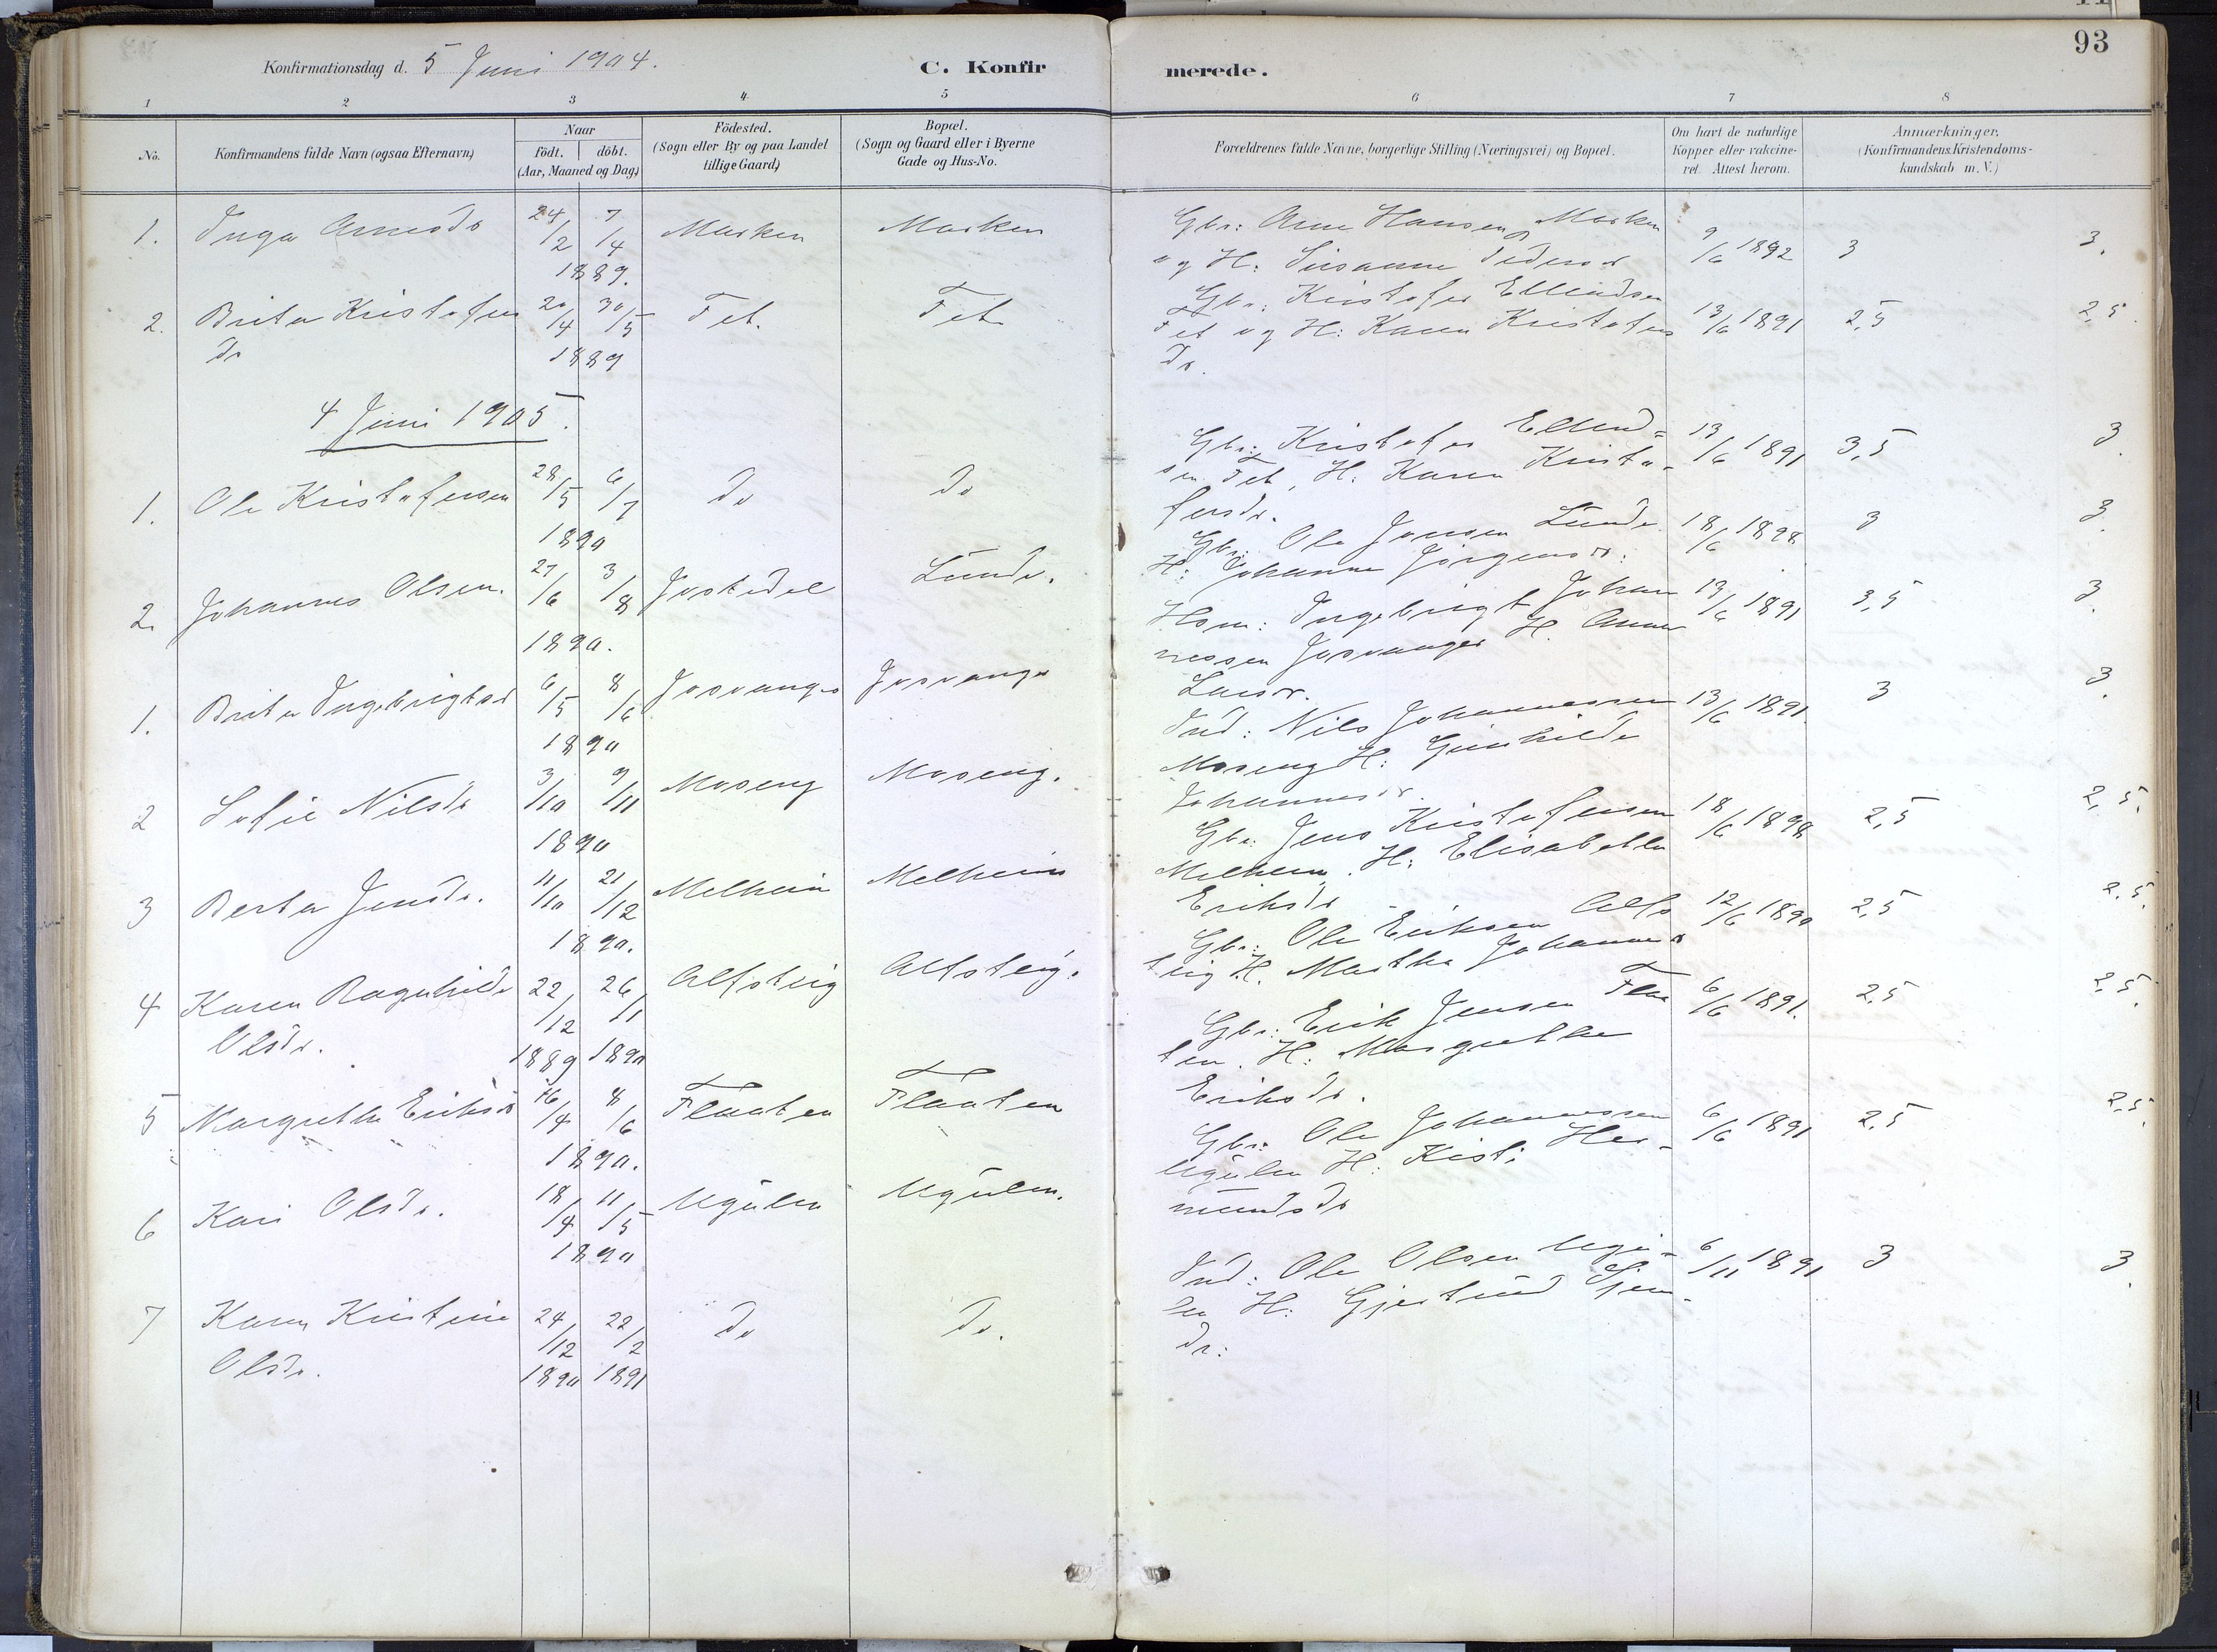 93
Konfirmationsdag d. 5 Juni 1904.
C. Konfirmerede.
1 2 3 4 5 6 7 8
No.
Konfirmandens fulde Navn (ogsaa Efternavn)
Naar
Födt. döbt.
(Aar, Maaned og Dag)
Födested.
(Sogn eller By og paa Landet
tillige Gaard)
Bopæl.
(Sogn og Gaard eller i Byerne
Gade og Hus-No.
Forældrenes fulde Navne, borgerlige Stilling (Næringsvei) og Bopæl.
Om havt de naturlige
Kopper eller vakcine-
ret. Attest herom.
Anmærkninger.
(Konfirmandens Kristendoms-
kundskab m. V.)
1. Inga Arnesdr 24/2 7/4 Marken Marken
1889.
Gbr: Arne Hansen Marken
og H: Susanne Pedersdr
9/6 1892 3 3.
2. Brita Kristofers 20/4 30/5 Fet. Fet
dr 1889
Gbr: Kristofer Ellendsen
Fet og H: Karen Kristofers
dr.
13/6 1891 2,5 2,5.
4 Juni 1905.
1. Ole Kristofersen 28/5 6/7 do do
1890
Gbr: Kristofer Ellend-
sen Fet, H: Karen Kristo-
fersdr.
13/6 1891 3,5 3.
2. Johannes Olsen. 27/6 3/8 Jostedal Lunde.
1890.
Gbr: Ole Jonsen Lunde
H: Johanne Jørgensdr.
18/6 1898 3 3.
1. Brita Ingebrigtsdr 6/5 8/6 Josvanger Josvanger
1890
Hsm: Ingebrigt Johan
nessen Josvanger H. Anna
Larsdr.
13/6 1891 3,5 3.
2 Sofie Nilsdr 3/10 9/11 Moseng Moseng.
1890
Ind: Nils Johannessen
Moseng H: Gunhilde
Johannesdr.
13/6 1891. 3 3.
3 Berta Jensdr. 11/10 21/12 Melheim Melheim
1890.
Gbr: Jens Kristofersen
Melheim. H: Elisabetha
Eriksdr
18/6 1898 2,5 2,5.
4 Karen Ragnhilde 22/12 26/1 Alfsteig Alfsteig.
Olsdr. 1889 1890
Gbr: Ole Eriksen Alfs
teig H. Martha Johannesdr
12/6 1890 2,5 2,5.
5 Margretha Eriksdr 16/4 8/6 Flaaten Flaaten
1890.
Gbr: Erik Jensen Flaa
ten. H: Margretha
Eriksdr.
6/6 1891. 2,5 2,5.
6 Kari Olsdr. 18/4 11/5 Ugulen Ugulen.
1890
Gbr: Ole Johannessen
Ugulen H: Kisti Her-
mundsdr
6/6 1891 2,5 2,5.
7 Karen Kristine 24/12 22/2 do do.
Olsdr. 1890 1891
Ind: Ole Olsen Ugu-
len H: Gjertrud
dr:
6/11 1891 3 3.